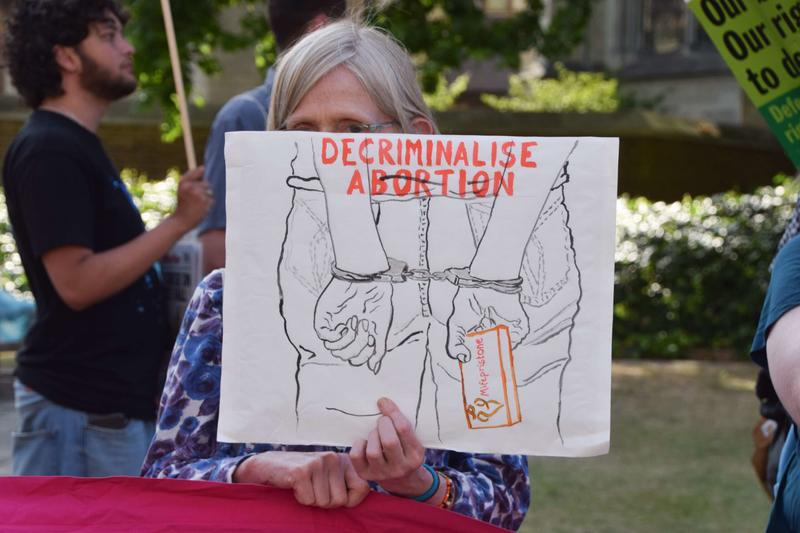 DECRIMINALISE
ABORTION
Mifepristone
Our
Our rig
to de
Defe
rig